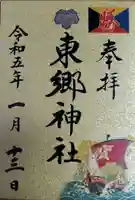 奉拝
東郷神社
令和五年 一月 十三日